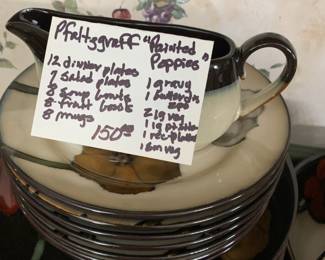 Pfaltzgraff "Painted
Poppies"
12 dinner plates
7 Salad plates
8 soup bowls
8 fruit bowls
8 mugs
1 gravy
1 butterdish
2 lg veg
1 lg platter
1 rec plate
1 sm veg
150.00